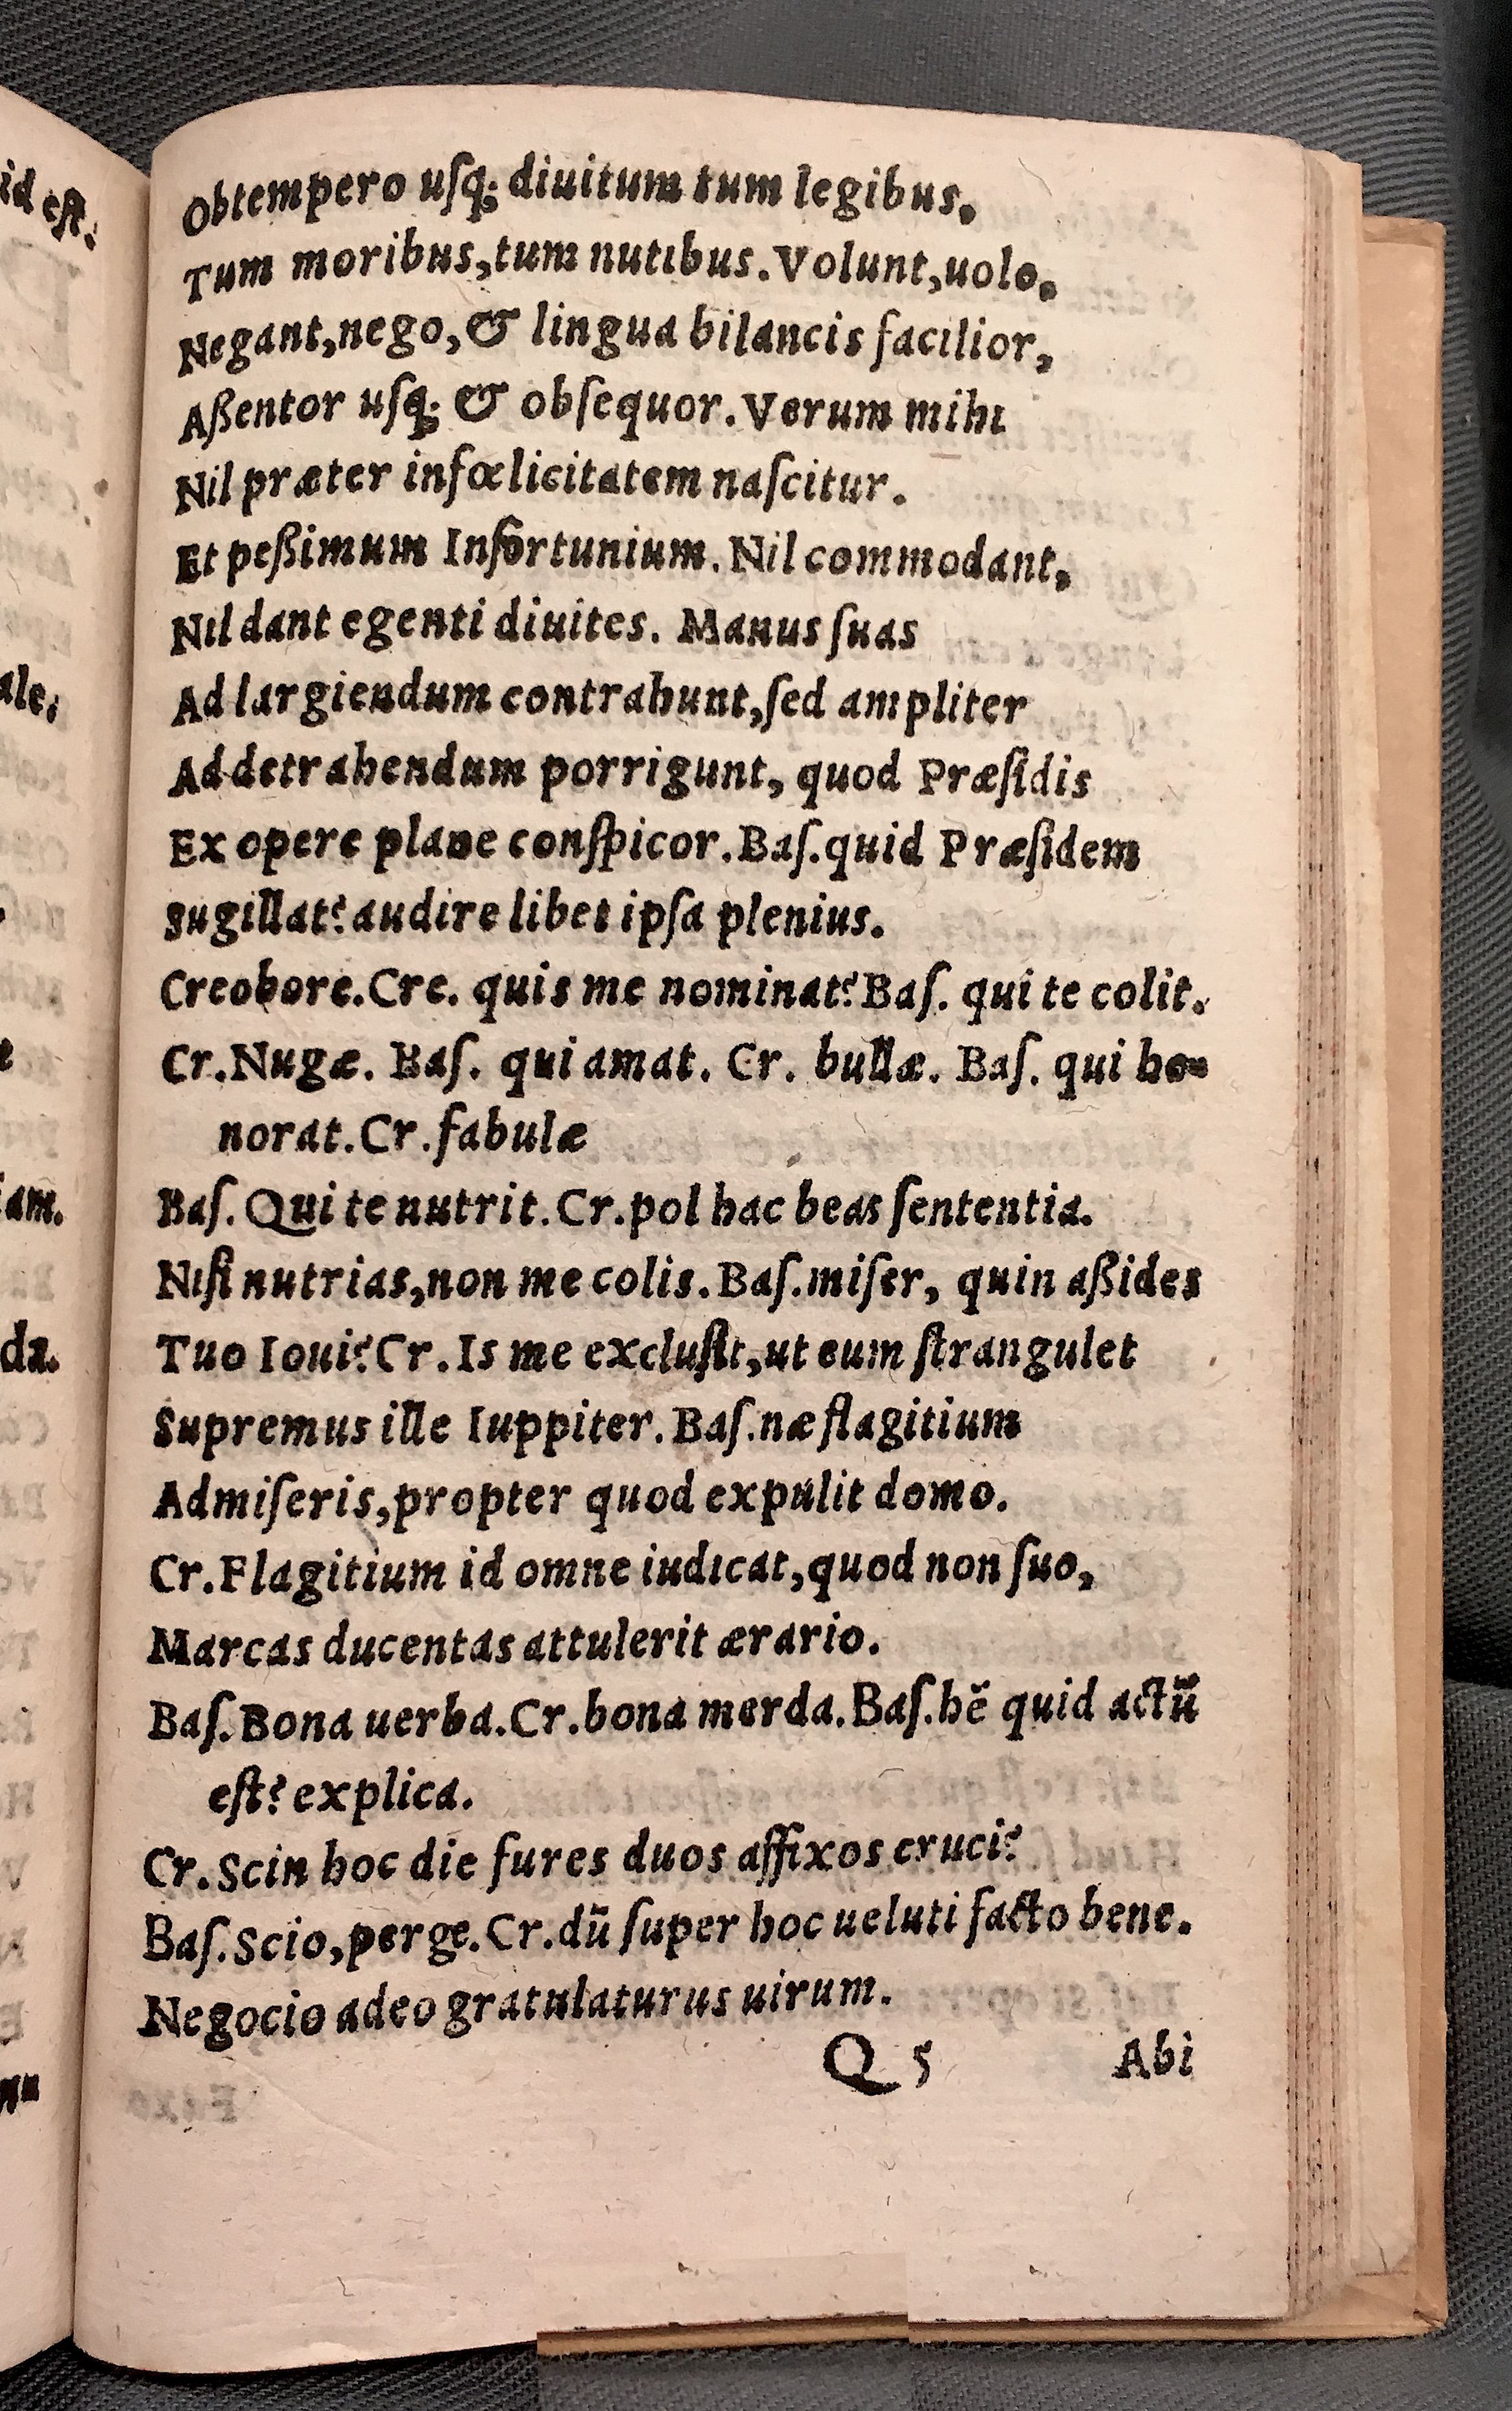 id est.
Obtempero uſq; diuitum tum legibus.
Tum moribus,tum nutibus.Volunt,uolo.
Negant,nego,& lingua bilancis facilior,
Aßentor uſq; & obſequor.Verum mihi
Nil præter infœlicitatem naſcitur.
Et peßimum Infortunium.Nil commodant,
Nil dant egenti diuites. Manus ſuas
Ad largiendum contrahunt,ſed ampliter
Ad detrahendum porrigunt, quod Præſidis
Ex opere plane conſpicor.Baſ.quid Præſidem
Sugillat?audire libet ipſa plenius.
Creobore.Cre. quis me nominat?Baſ. qui te colit.
Cr.Nugæ. Baſ. qui amat. Cr. bullæ. Baſ. qui ho-
norat.Cr.fabulæ
Baſ. Qui te nutrit.Cr.pol hac beas ſententia.
Niſi nutrias,non me colis.Baſ.miſer, quin aßides
Tuo Ioui?Cr.Is me excluſit,ut eum ſtrangulet
Supremus ille Iuppiter.Baſ.næ flagitium
Admiſeris,propter quod expulit domo.
Cr.Flagitium id omne iudicat,quod non ſuo,
Marcas ducentas attulerit ærario.
Baſ.Bona uerba.Cr.bona merda.Baſ.hē quid actū
eſt?explica.
Cr.Scin hoc die fures duos affixos cruci?
Baſ.Scio,perge.Cr.dū ſuper hoc ueluti facto bene.
Negocio adeo gratulaturus uirum.
Q 5 Abi